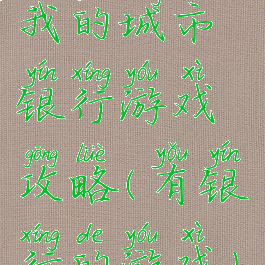 我的城市
yín xíng yóu xì
银行游戏
gōng lüè yǒu yín
攻略(有银
xíng de yóu xì
行的游戏)